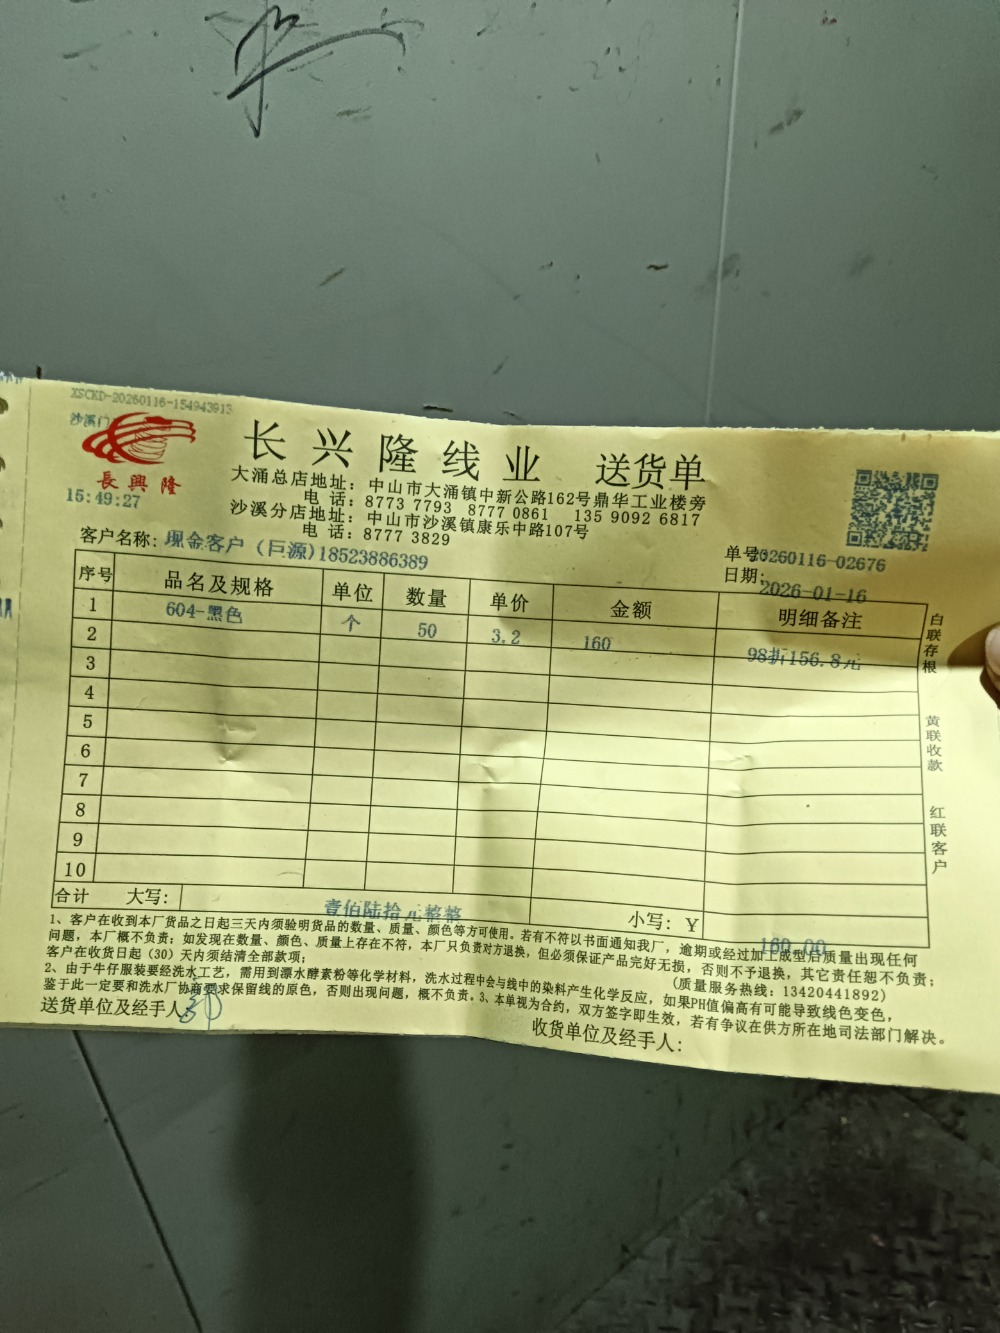 XSCKD-20260116-154943913
沙溪门
長興隆
15:49:27
长兴隆线业 送货单
大涌总店地址：中山市大涌镇中新公路162号鼎华工业楼旁
电 话：8773 7793 8777 0861 135 9092 6817
沙溪分店地址：中山市沙溪镇康乐中路107号
电 话：8777 3829
客户名称：现金客户（巨源)18523886389
单号：20260116-02676
日期：2026-01-16
序号 品名及规格 单位 数量 单价 金额 明细备注
1 604-黑色 个 50 3.2 160 98折156.8元
2
3
4
5
6
7
8
9
10
合计 大写：壹佰陆拾元整整 小写：￥160.00
白联存根
黄联收款
红联客户
1、客户在收到本厂货品之日起三天内须验明货品的数量、质量、颜色等方可使用。若有不符以书面通知我厂，逾期或经过加工成型后质量出现任何
问题，本厂概不负责；如发现在数量、颜色、质量上存在不符，本厂只负责对方退换，但必须保证产品完好无损，否则不予退换，其它责任恕不负责；
客户在收货日起（30）天内须结清全部款项； (质量服务热线：13420441892)
2、由于牛仔服装要经洗水工艺，需用到漂水酵素粉等化学材料，洗水过程中会与线中的染料产生化学反应，如果PH值偏高有可能导致线色变色，
鉴于此一定要和洗水厂协商要求保留线的原色，否则出现问题，概不负责。3、本单视为合约，双方签字即生效，若有争议在供方所在地司法部门解决。
送货单位及经手人：
收货单位及经手人：